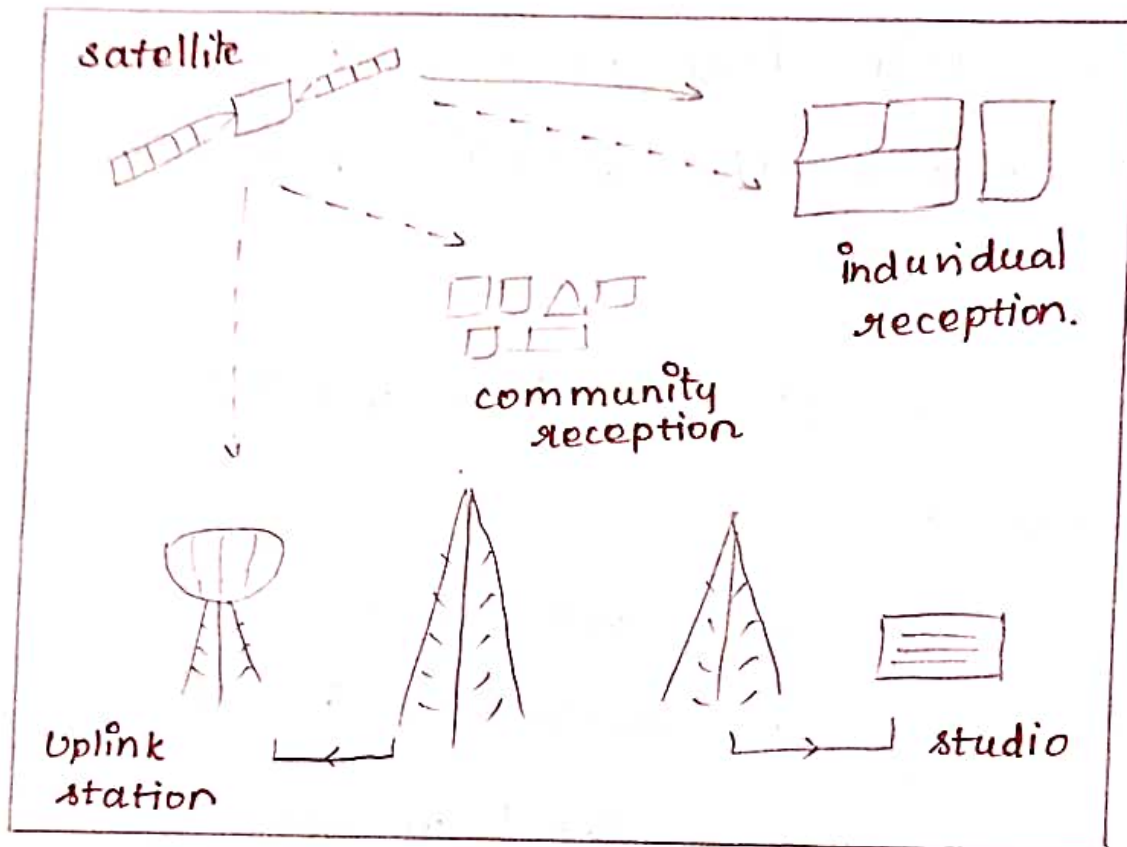 satellite
induridual
reception.
community
reception
Uplink
station
studio